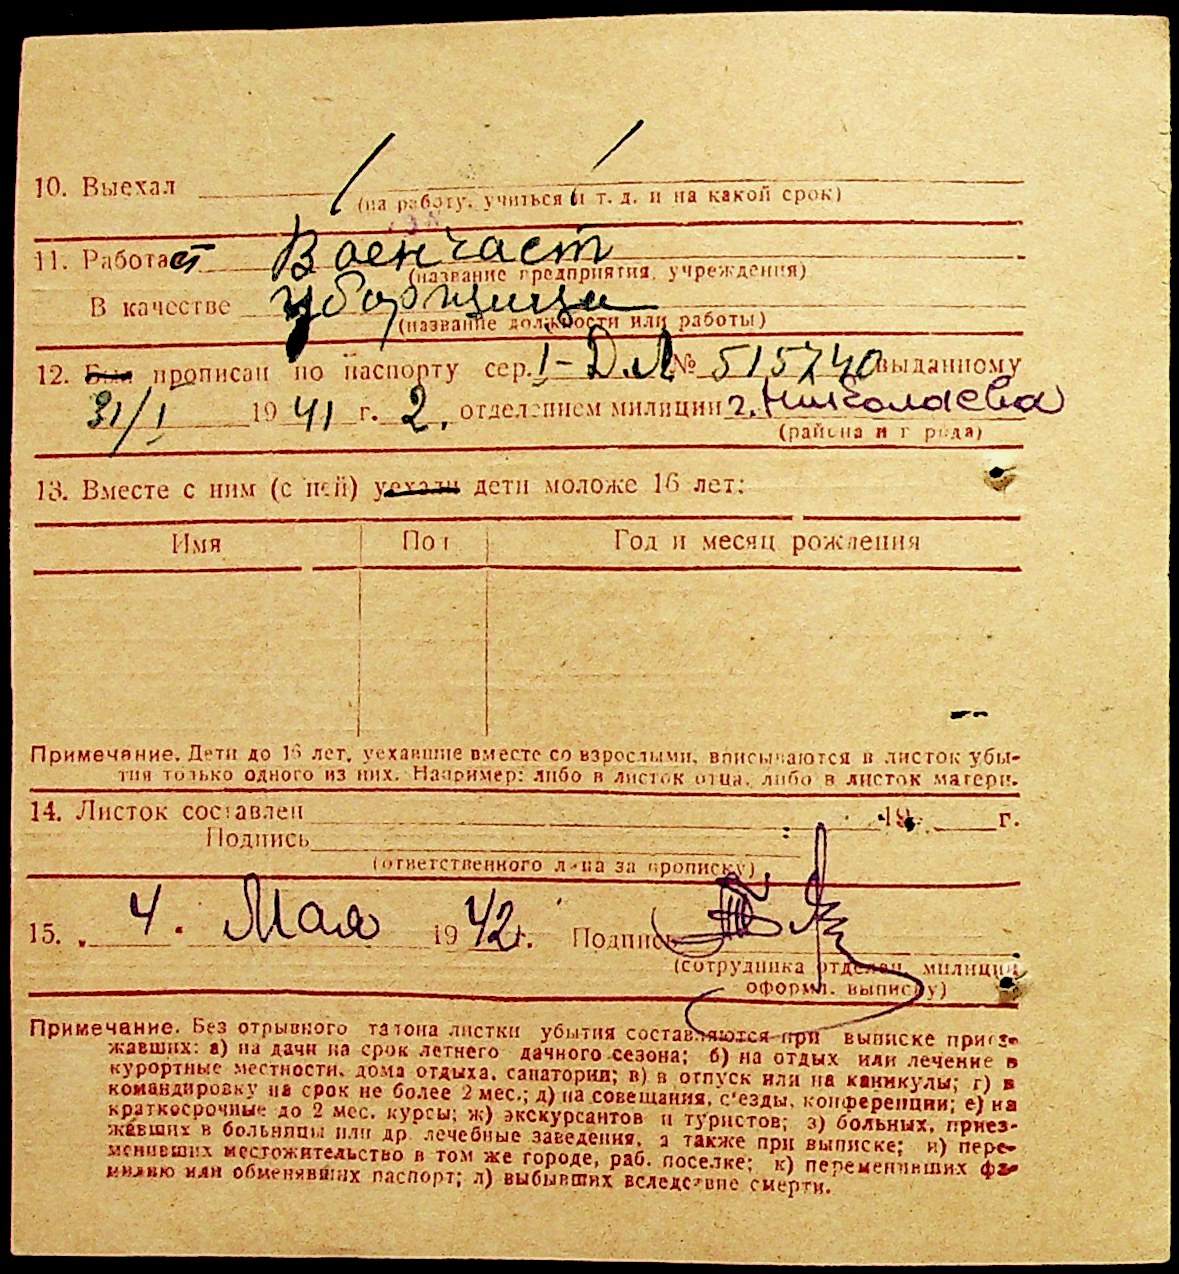 10. Выехал
(на работу, учиться и т. д. и на какой срок)
11. Работает Военчаст
(название предприятия, учреждения)
В качестве уборщица
(название должности или работы)
12. Был прописан по паспорту сер. I-ДЛ № 515740 выданному
31/I 1941 г. 2. отделением милиции г. Николаева
(района и города)
13. Вместе с ним (с ней) уехали дети моложе 16 лет:
Имя Пол Год и месяц рождения
Примечание. Дети до 16 лет, уехавшие вместе со взрослыми, вписываются в листок убы-
тия только одного из них. Например: либо в листок отца, либо в листок матери.
14. Листок составлен 19 г.
Подпись
(ответственного лица за прописку)
15. 4. Мая 1942 г. Подпись
(сотрудника отделен. милиции
оформл. выписку)
Примечание. Без отрывного талона листки убытия составляются при выписке приез-
жавших: а) на дачи на срок летнего дачного сезона; б) на отдых или лечение в
курортные местности, дома отдыха, санатории; в) в отпуск или на каникулы; г) в
командировку на срок не более 2 мес.; д) на совещания, с'езды, конференции; е) на
краткосрочные до 2 мес. курсы; ж) экскурсантов и туристов; з) больных, приез-
жавших в больницы или др. лечебные заведения, а также при выписке; и) пере-
менивших местожительство в том же городе, раб. поселке; к) переменивших фа-
милию или обменявших паспорт; л) выбывших вследствие смерти.